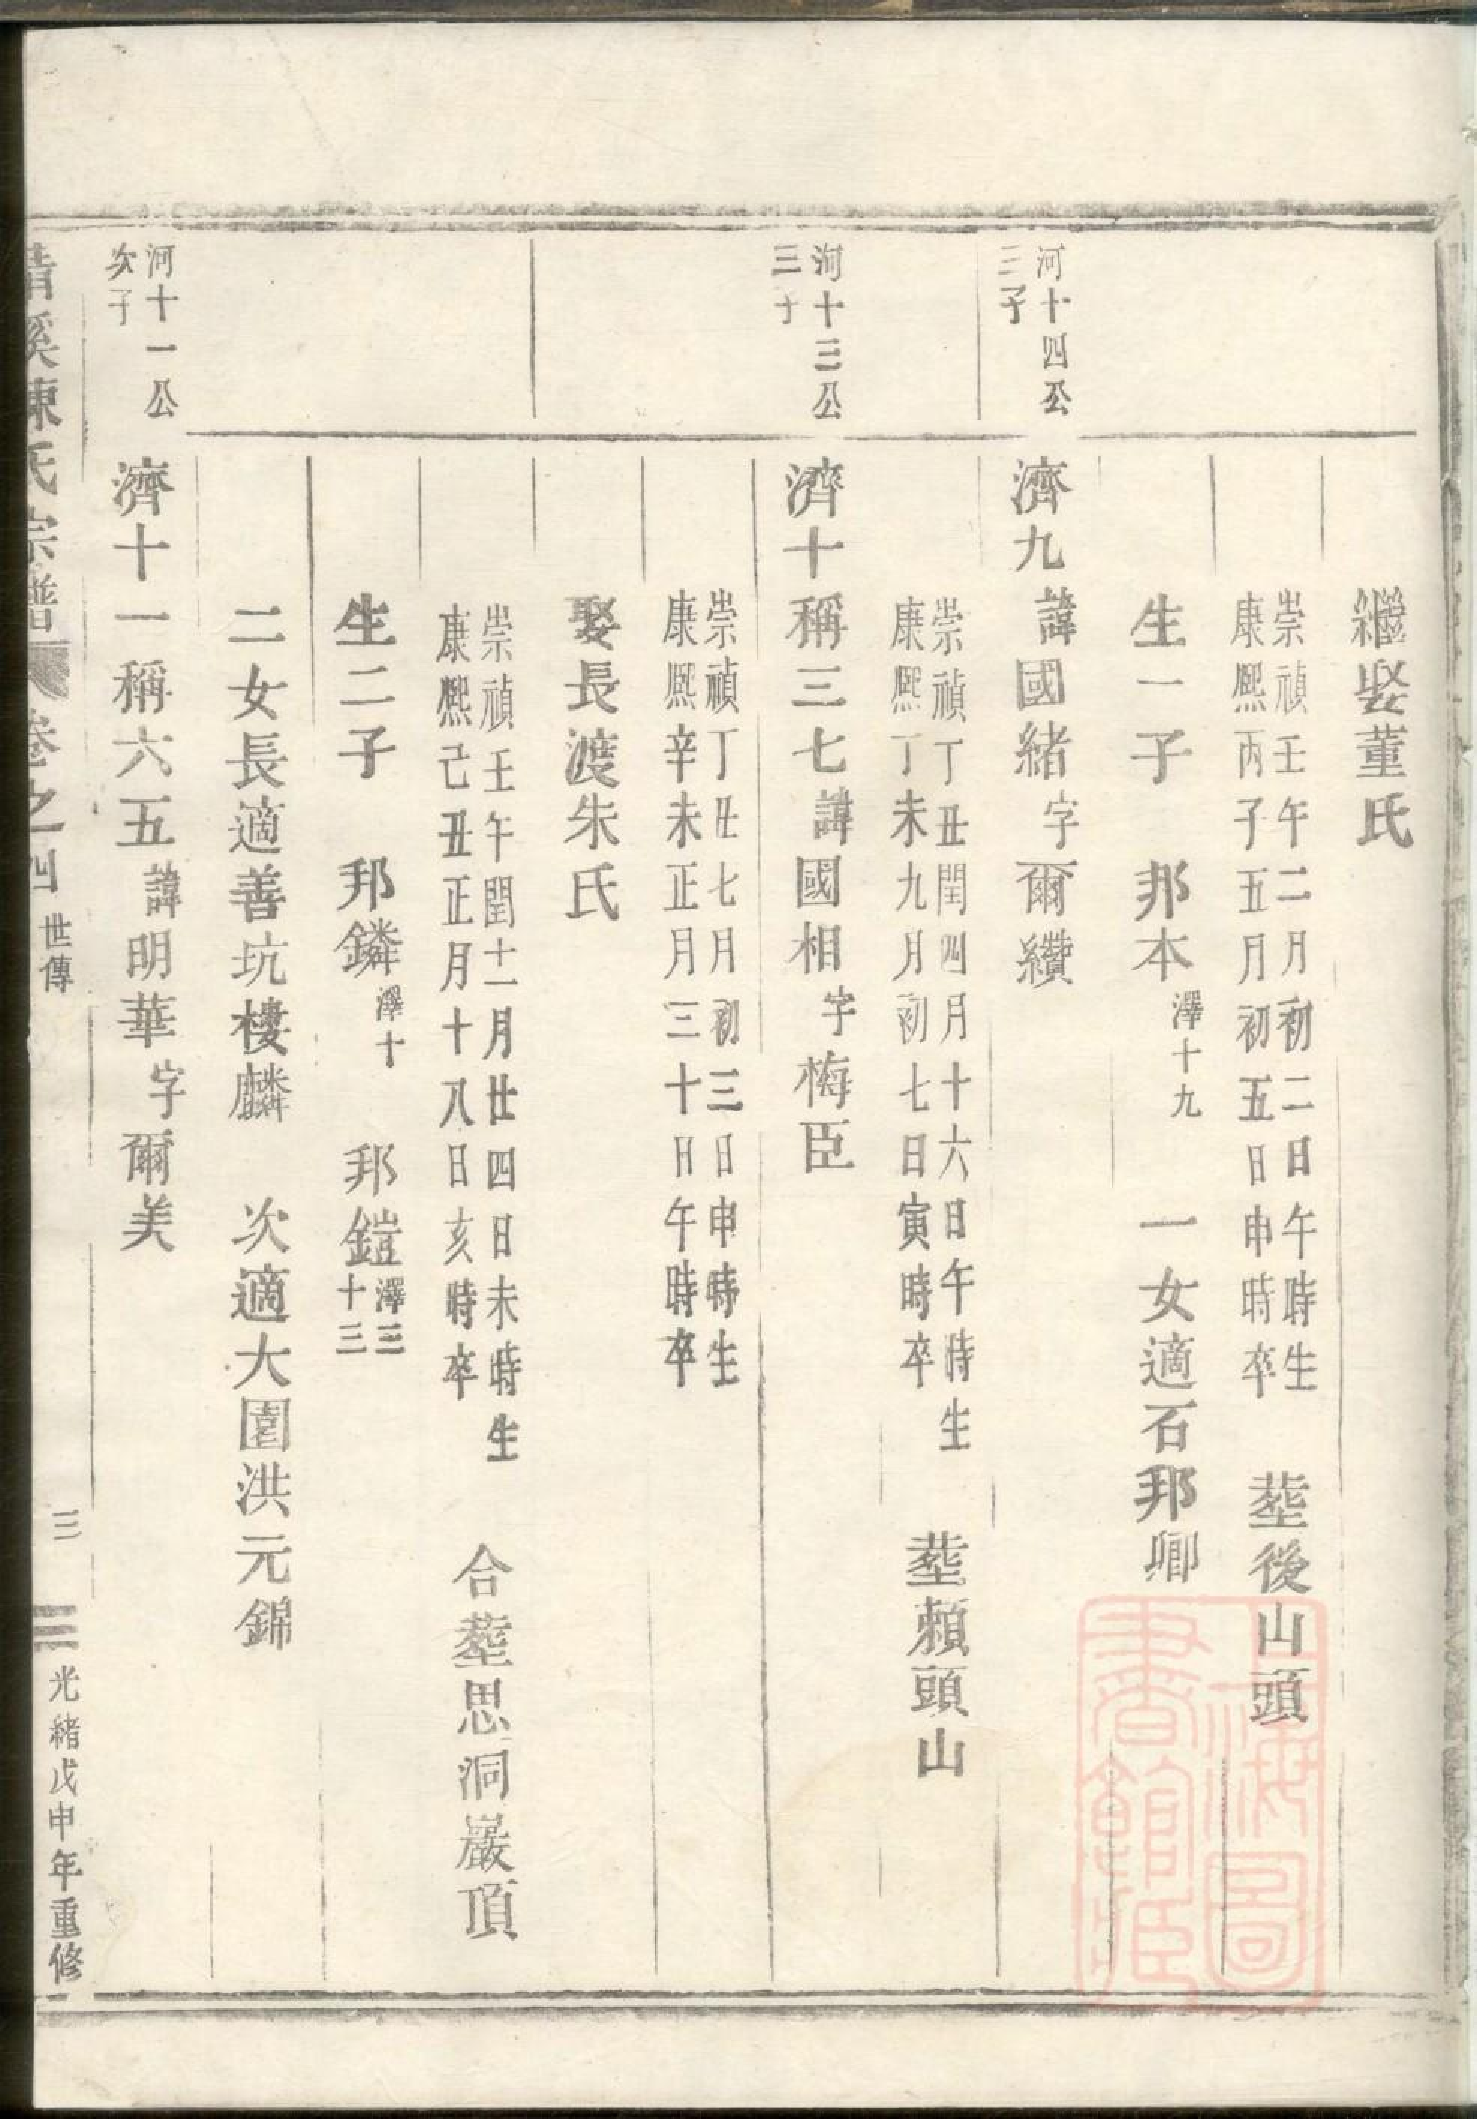 繼娶董氏
崇禎壬午二月初二日午時生
康熙丙子五月初五日申時卒
塟後山頭
生一子 邦本 澤十九 一女適石邦卿
河十四公
三子
濟九 諱國緒 字爾纘
崇禎丁丑閏四月十六日午時生
康熙丁未九月初七日寅時卒
塟賴頭山
河十三公
三子
濟十稱三七 諱國相 字梅臣
崇禎丁丑七月初三日申時生
康熙辛未正月三十日午時卒
娶長渡朱氏
崇禎壬午閏十一月廿四日未時生
康熙己丑正月十八日亥時卒
合塟思洞巖頂
生二子 邦鏻 澤十 邦鎧 澤三十三
二女長適善坑樓麟 次適大園洪元錦
河十一公
次子
濟十一稱六五 諱明華 字爾美
清溪陳氏宗譜 卷之四 世傳 三 光緒戊申年重修
上海圖書館藏